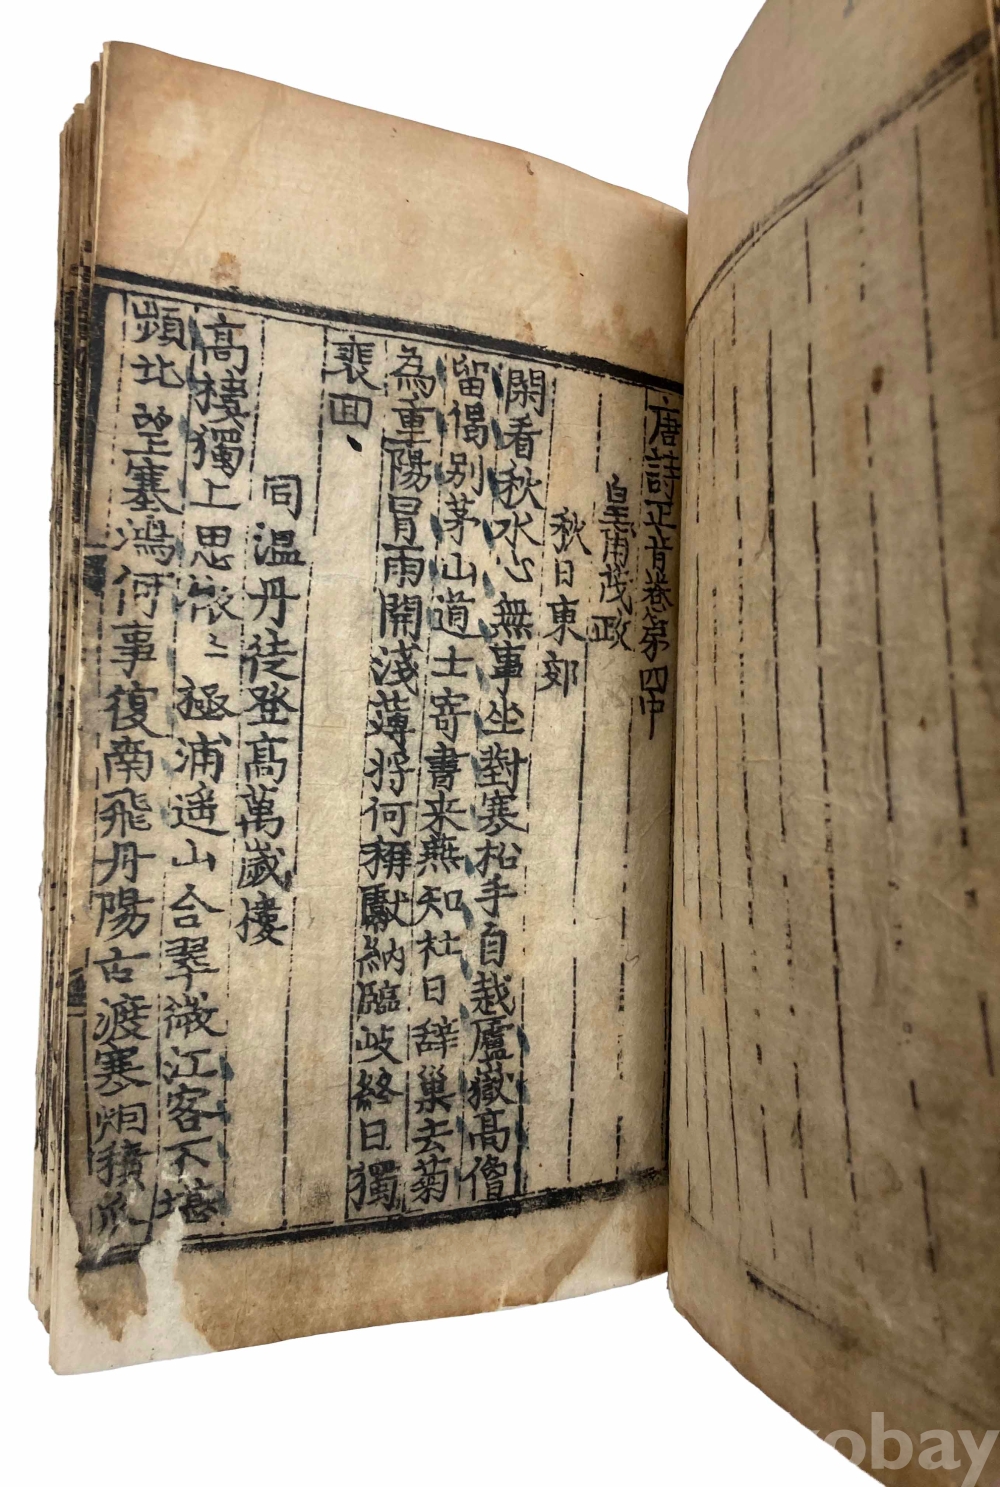 唐詩正音卷第四中
皇甫茂政
秋日東郊
閑看秋水心無事坐對寒松手自栽廬嶽高僧
留偈别茅山道士寄書来燕知社日辞巢去菊
為重陽冒雨開淺薄将何稱獻納臨歧終日獨
裴回
同温丹徒登高萬歲樓
高樓獨上思依〻極浦遥山合翠微江客不堪
頻北望塞鴻何事復南飛丹陽古渡寒烟積瓜
kobay